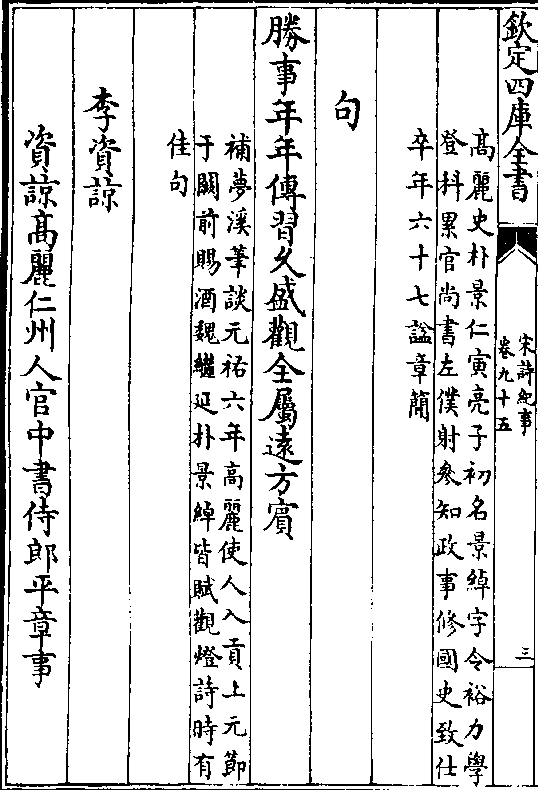 欽定四庫全書
宋詩紀事
卷九十五
三
高麗史朴景仁寅亮子初名景綽字令裕力學
登科累官尚書左僕射參知政事修國史致仕
卒年六十七諡章簡
句
勝事年年傳習久盛觀全屬遠方賓
補夢溪筆談元祐六年高麗使人入貢上元節
于闕前賜酒魏繼延朴景綽皆賦觀燈詩時有
佳句
李資諒
資諒高麗仁州人官中書侍郎平章事